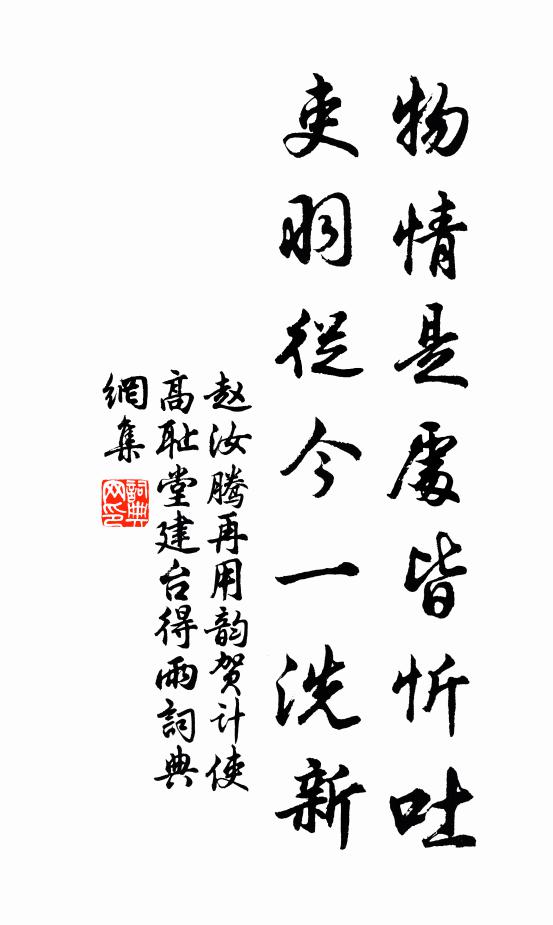 物情是處皆忻吐
吏羽從今一洗新
赵汝騰再用韵贺计使
高耻堂建台得雨詞典
網集
詞典
网印